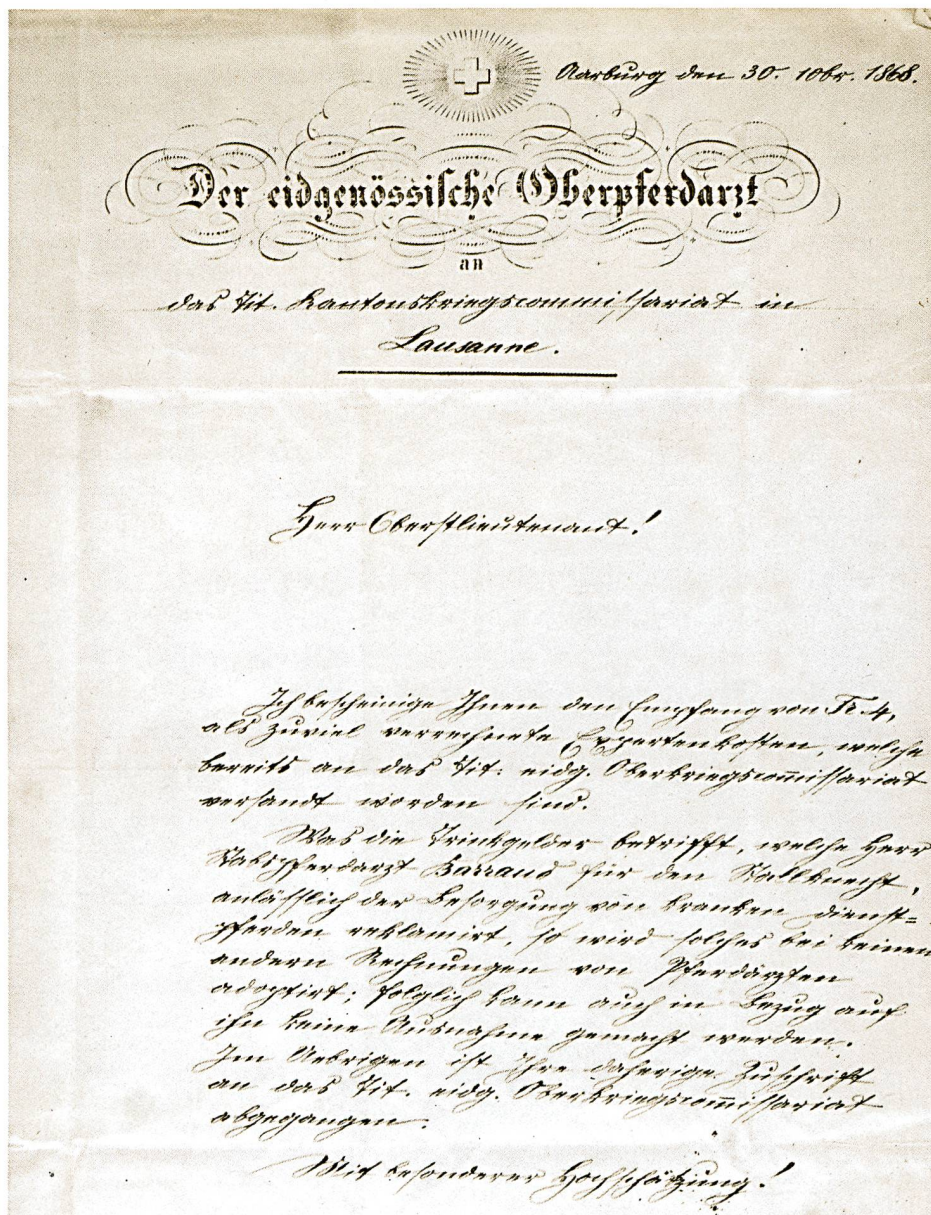 Aarburg den 30. 10br. 1868.
Der eidgenössische Oberpferdarzt
an
das Tit. Kantonskriegscommissariat in
Lausanne.
Herr Oberstlieutenant!
Ich bescheinige Ihnen den Empfang von Fr. 4,
als zuviel verrechnete Expertenkosten, welche
bereits an das Tit: eidg. Oberkriegscommissariat
versandt worden sind.
Was die Trinkgelder betrifft, welche Herr
Stabspferdarzt Barraud für den Stallknecht,
anlässlich der Besorgung von kranken Dienst=
pferden reklamirt, so wird solches bei keinen
andern Rechnungen von Pferdärzten
adoptirt; folglich kann auch in Bezug auf
ihn keine Ausnahme gemacht werden.
Im Uebrigen ist Ihre daherige Zuschrift
an das Tit. eidg. Oberkriegscommissariat
abgegangen.
Mit besonderer Hochschätzung!